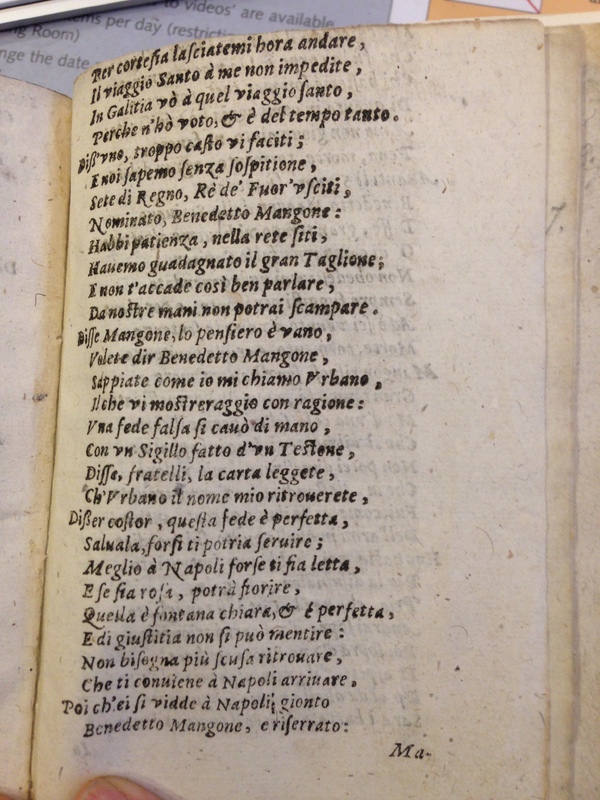 to videos' are available
items per day (restricti
ng Room)
nge the date
Per cortesia lasciatemi hora andare,
Il viaggio Santo à me non impedite,
In Galitia vò à quel viaggio santo,
Perche n'hò voto, & è del tempo tanto.
Diss'vno, troppo casto vi faciti;
E noi sapemo senza sospitione,
Sete di Regno, Rè de' Fuor'vsciti,
Nominato, Benedetto Mangone:
Habbi patienza, nella rete siti,
Hauemo guadagnato il gran Taglione;
E non t'accade così ben parlare,
Da nostre mani non potrai scampare.
Disse Mangone, lo pensiero è vano,
Volete dir Benedetto Mangone,
Sappiate come io mi chiamo Vrbano,
Il che vi mostreraggio con ragione:
Vna fede falsa si cauò di mano,
Con vn Sigillo fatto d'vn Testone,
Disse, fratelli, la carta leggete,
Ch'Vrbano il nome mio ritrouerete,
Disser costor, questa fede è perfetta,
Saluala, forsi ti potria seruire;
Meglio à Napoli forse ti fia letta,
E se fia rosa, potrà fiorire,
Quella è fontana chiara, & è perfetta,
E di giustitia non si può mentire:
Non bisogna più scusa ritrouare,
Che ti conuiene à Napoli arriuare.
Poi ch'ei si vidde à Napoli gionto
Benedetto Mangone, e riserrato:
Ma-